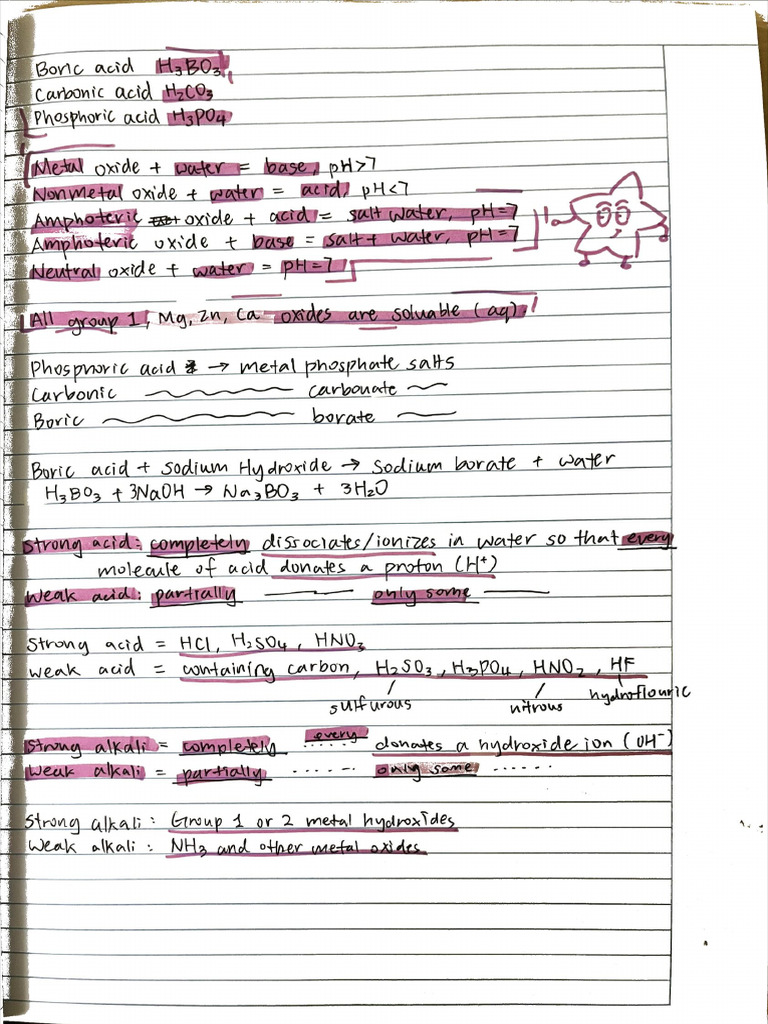 Boric acid H₃BO₃
Carbonic acid H₂CO₃
Phosphoric acid H₃PO₄
Metal oxide + water = base, pH>7
Nonmetal oxide + water = acid, pH<7
Amphoteric oxide + acid = salt water, pH=7
Amphoteric oxide + base = salt + water, pH=7
Neutral oxide + water = pH=7
All group 1, Mg, Zn, Ca oxides are soluable (aq)
Phosphoric acid → metal phosphate salts
Carbonic carbonate
Boric borate
Boric acid + sodium Hydroxide → sodium borate + water
H₃BO₃ + 3NaOH → Na₃BO₃ + 3H₂O
Strong acid: completely dissociates/ionizes in water so that every
molecule of acid donates a proton (H⁺)
Weak acid: partially only some
Strong acid = HCl, H₂SO₄, HNO₃
Weak acid = containing carbon, H₂SO₃, H₃PO₄, HNO₂, HF
sulfurous nitrous hydroflouric
Strong alkali = completely ..... every donates a hydroxide ion (OH⁻)
Weak alkali = partially ..... only some ......
Strong alkali: Group 1 or 2 metal hydroxides
Weak alkali: NH₃ and other metal oxides